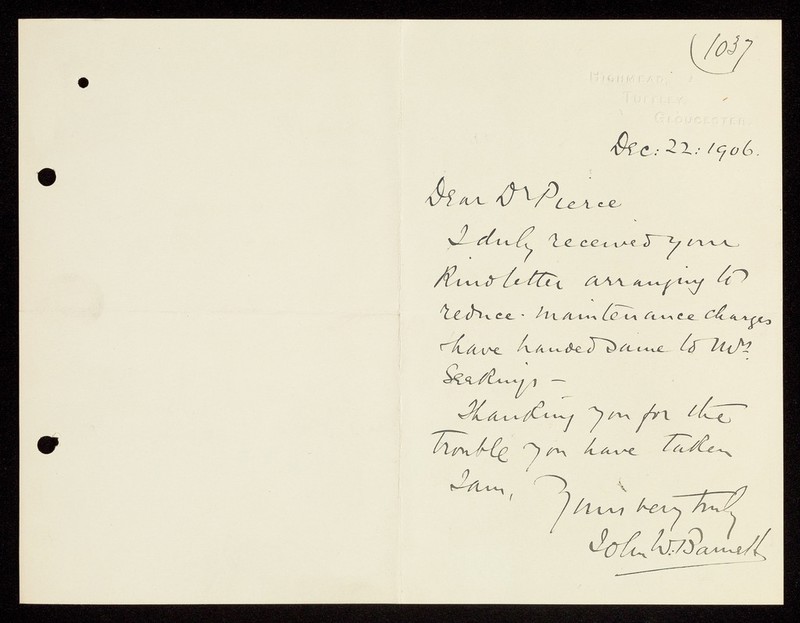 (1037
HIGHMEAD,
TUFFLEY,
GLOUCESTER.
Dec: 22: 1906.
Dear Dr Pierce
I duly received your
Kind letter arranging to
reduce - maintenance charges
have handed same to Mrs
Seekings -
Thanking you for the
trouble you have taken
I am,
Yours very truly
John W. Barnett